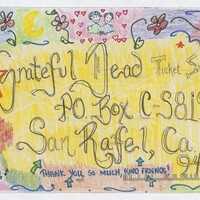 Grateful Dead Ticket S
PO Box C-S81
San Raffel, Ca.
94
THANK YOU, SO MUCH, KIND FRIENDS!